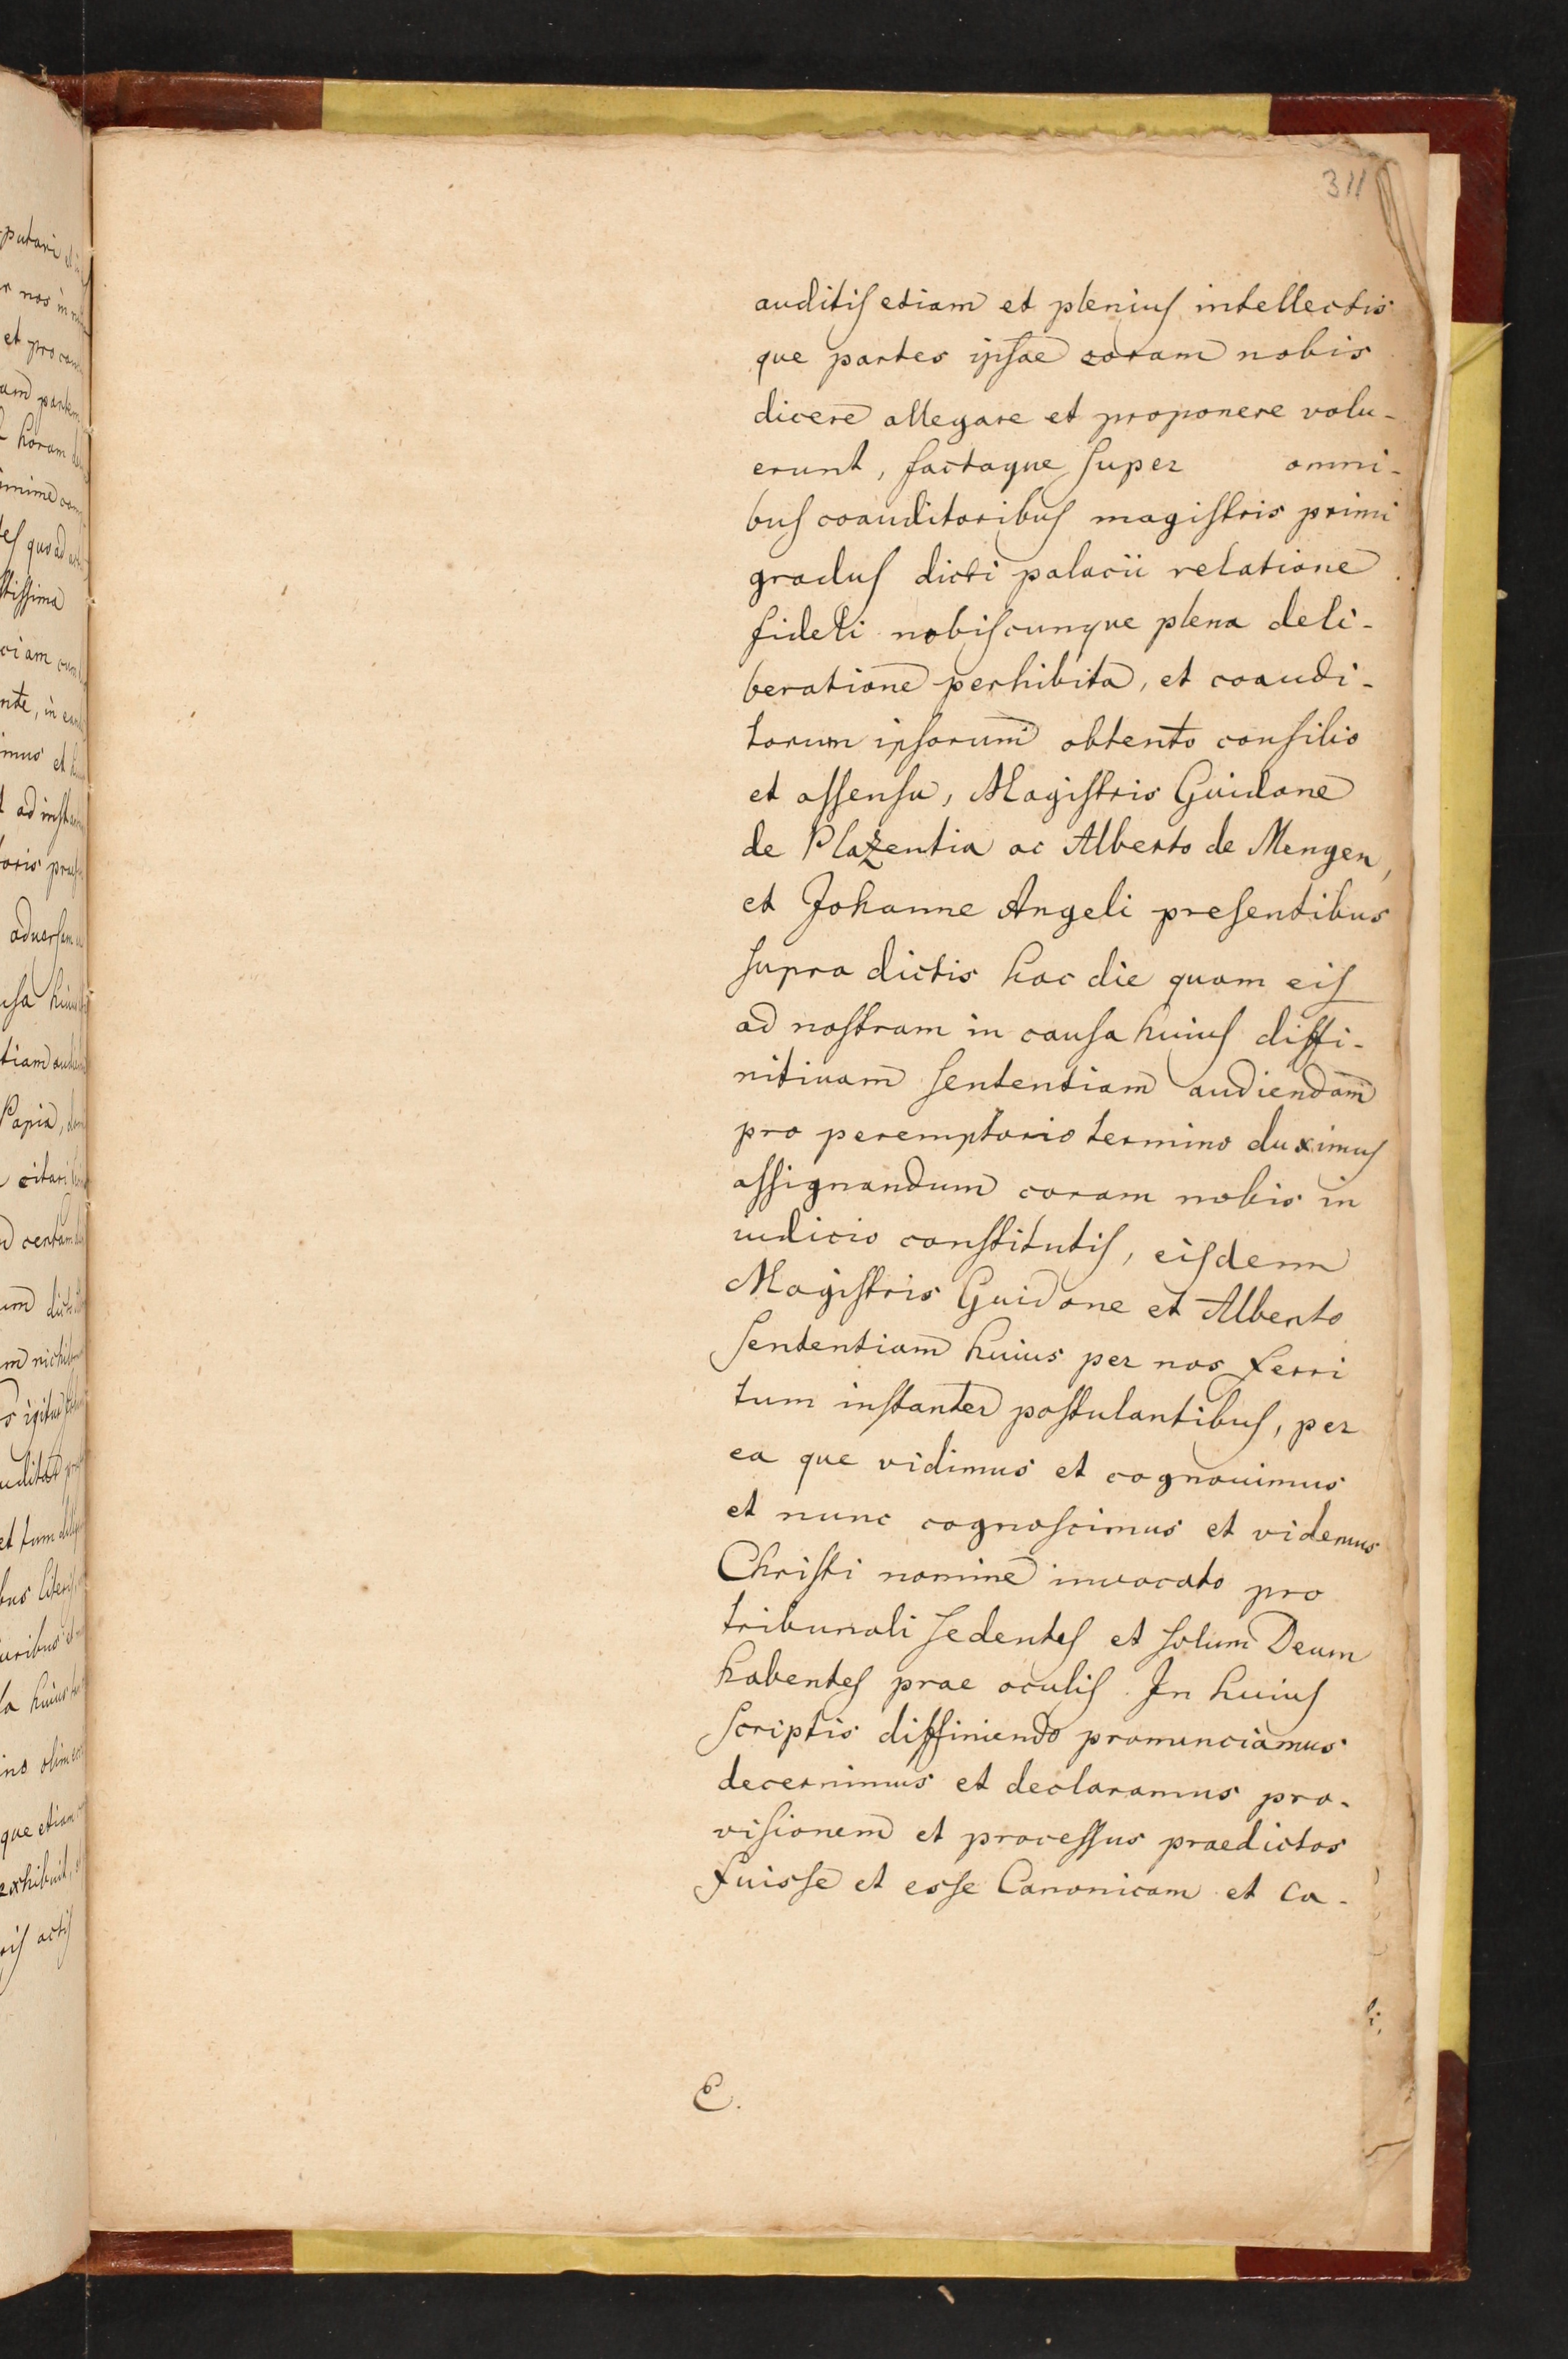 311
auditis etiam et plenius intellectis
que partes ipsae coram nobis
dicere allegare et proponere volu-
erunt, factaque super omni-
bus coauditoribus magistris primi
gradus dicti palacii relatione
fideli nobiscunque plena deli-
beratione perhibita, et coaudi-
torum ipsorum obtento consilio
et assensu, Magistris Guidone
de Plazentia ac Alberto de Mengen,
et Johanne Angeli presentibus
supra dictis hac die quam eis
ad nostram in causa huius diffi-
nitiuam sententiam audiendam
pro peremptorio termino duximus
assignandum coram nobis in
iudicio constitutis, eisdem
Magistris Guidone et Alberto
sententiam huius per nos ferri
tum instanter postulantibus, per
ea que vidimus et cognouimus
et nunc cognoscimus et videmus
Christi nomine invocato pro
tribunali sedentes et solum Deum
habentes prae oculis. In huius
scriptis diffiniendo pronunciamus
decernimus et declaramus pro-
visionem et processus praedictos
fuisse et esse Canonicam et ca-